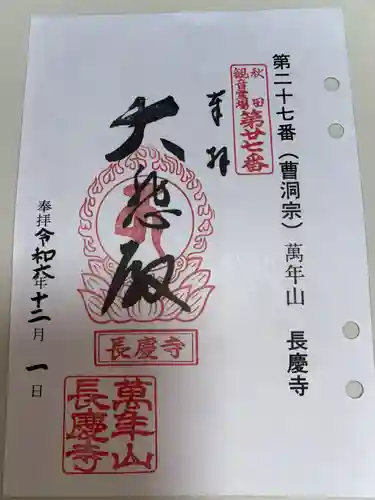 第二十七番（曹洞宗）萬年山　長慶寺
秋田
観音霊場
第廿七番
奉拝
大悲殿
長慶寺
奉拝
令和六年十二月一日
萬年山
長慶寺